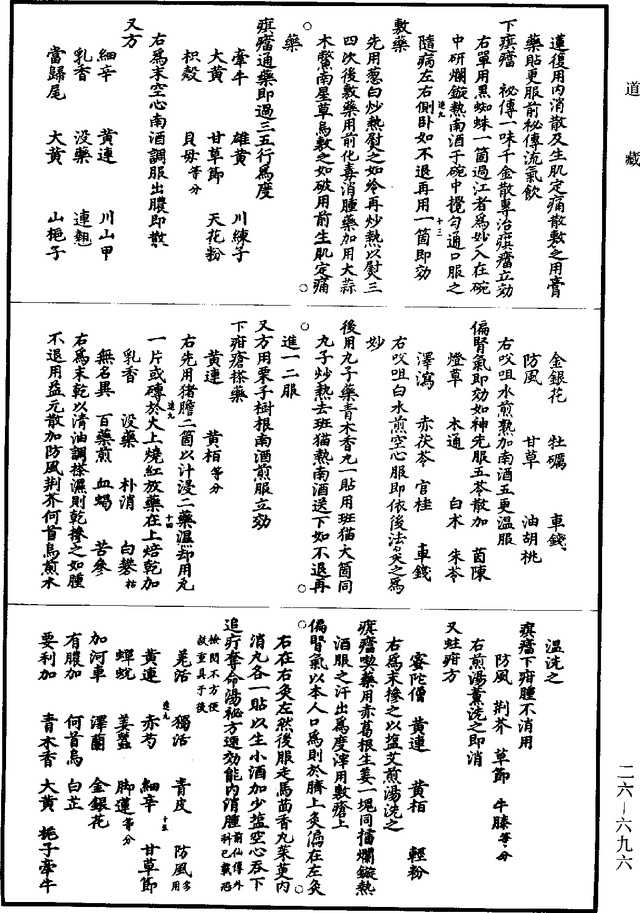 道藏
蓮後用内消散及生肌定痛散敷之用膏
藥貼更服前祕傳流氣飲
下㾕癗　祕傳一味千金散專治㾕癗立効
右單用黑蜘蛛一箇過江者爲妙入在碗
中研爛鏇熱南酒于碗中攪勻通口服之
隨病左右側卧如不退再用一箇即効
敷藥
先用葱白炒熱熨之如冷再炒熱以熨三
四次後敷藥用前化毒消腫藥加用大蒜
木鱉南星草烏敷之如破用前生肌定痛
藥
㾕癗通藥即過三五行爲度
牽牛　雄黄　川練子
大黄　甘草節　天花粉
枳殼　貝母等分
右爲末空心南酒調服出膿即散
又方
細辛　黄連　川山甲
乳香　没藥　連翹
當歸尾　大黄　山梔子
金銀花　牡礪　車錢
防風　甘草　油胡桃
右㕮咀水煎熟加南酒五更温服
偏腎氣即効如神先服五苓散加　茵陳
燈草　木通　白术　朱苓
澤瀉　赤茯苓　官桂　車錢
右㕮咀白水煎空心服即依後法灸之爲
妙
後用丸子藥青木香丸一貼用斑猫大箇同
丸子炒熱去斑猫熱南酒送下如不退再
進一二服
又方用栗子樹根南酒煎服立効
下疳瘡搽藥
黄連　黄栢等分
右先用猪膽二箇以汁浸二藥濕却用瓦
一片或磚於火上燒紅放藥在上焙乾加
乳香　没藥　朴消　白礬枯
無名異　百藥煎　血蝎　苦參
右爲末乾以清油調搽濕則乾摻之如腫
不退用益元散加防風荆芥何首烏煎水
温洗之
㾕癗下疳腫不消用
防風　荆芥　草節　牛膝等分
右煎湯薰洗之即消
又蛀疳方
蜜陀僧　黄連　黄栢　輕粉
右爲末摻之以塩艾煎湯洗之
㾕癗喫藥用赤葛根生姜一塊同擂爛鏇熱
酒服之汗出爲度滓用敷瘡上
偏腎氣以本人口爲則於臍上灸偏在左灸
右在右灸左然後服走馬茴香丸茱萸内
消丸各一貼以生小酒加少塩空心吞下
追疔奪命湯祕方速効能内消腫前仙傳外科已載恐
檢閲不方便故重具于後
羌活　獨活　青皮　防風多用
黄連　赤芍　細辛　甘草節
蟬蛻　姜蠶　脚蓮等分
加河車　澤蘭　金銀花
有膿加　何首烏　白芷
要利加　青木香　大黄　梔子牽牛
二六—六九六